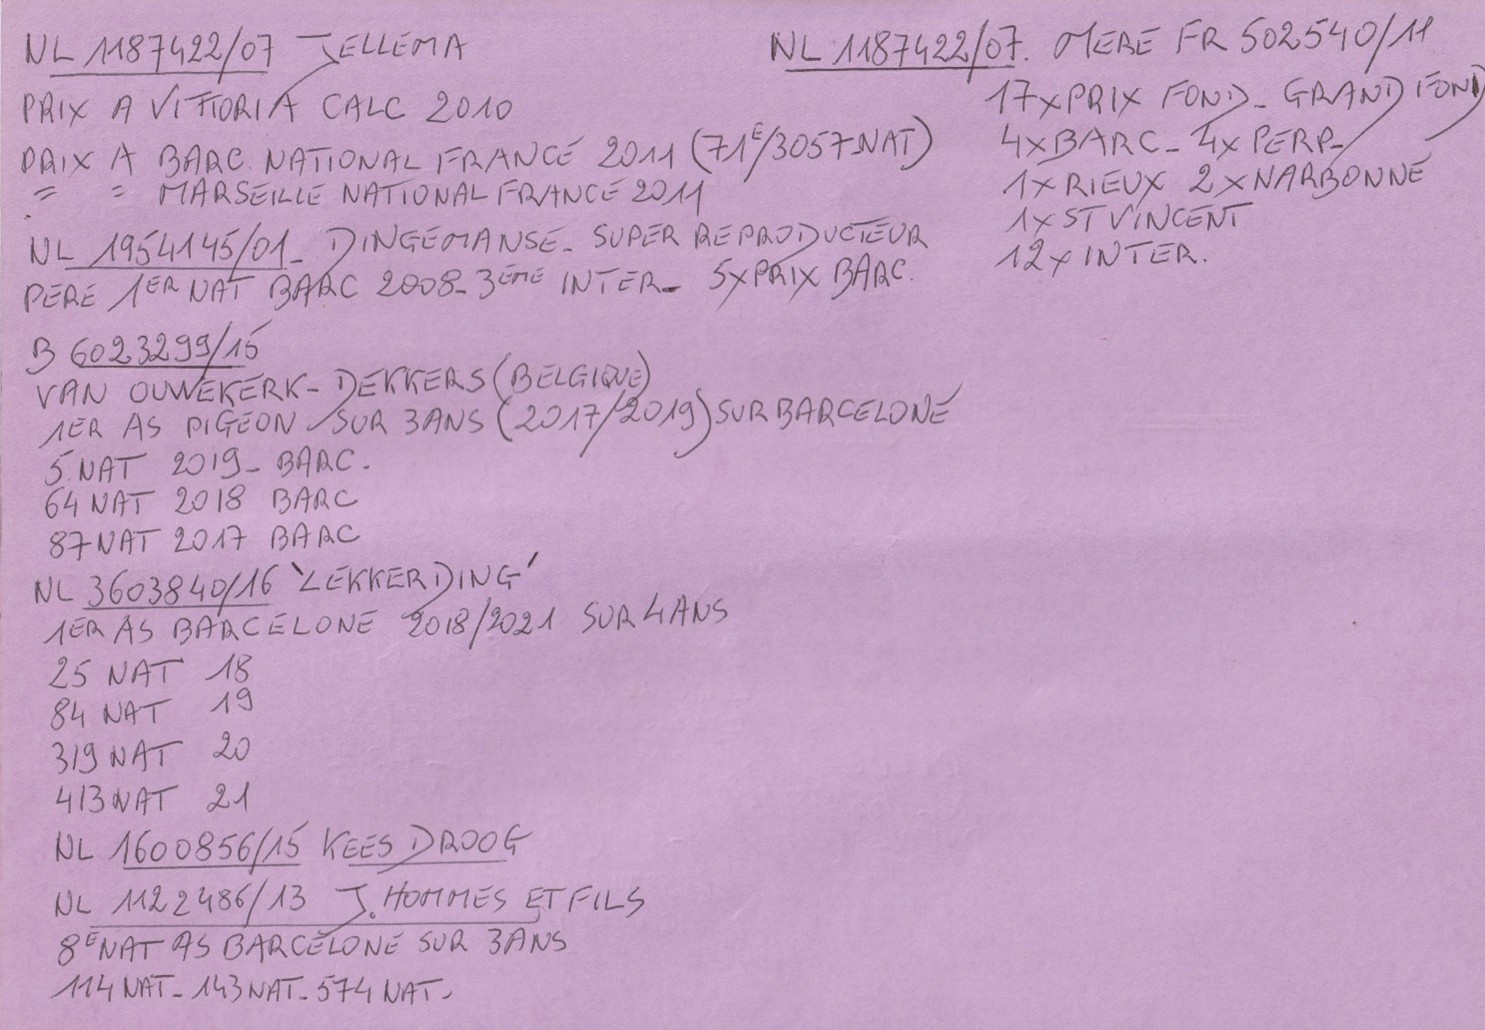 NL 1187422/07 JELLEMA
PRIX A VITTORIA CALC 2010
PRIX A BARC. NATIONAL FRANCE 2011 (71E/3057 NAT)
" " MARSEILLE NATIONAL FRANCE 2011
NL 1954145/01_ DINGEMANSE_ SUPER REPRODUCTEUR
PERE 1ER NAT BARC 2008_ 3ÈME INTER_ 5xPRIX BARC.
B 6023299/15
VAN OUWEKERK_ DEKKERS (BELGIQUE)
1ER AS PIGEON SUR 3 ANS (2017/2019) SUR BARCELONE
5 NAT 2019_ BARC.
64 NAT 2018 BARC
87 NAT 2017 BARC
NL 3603840/16 'LEKKERDING'
1ER AS BARCELONE 2018/2021 SUR 4 ANS
25 NAT 18
84 NAT 19
319 NAT 20
413 NAT 21
NL 1600856/15 KEES DROOG
NL 1122486/13 J. HOMMES ET FILS
8E NAT AS BARCELONE SUR 3 ANS
114 NAT_ 143 NAT_ 574 NAT_
NL 1187422/07. MERE FR 502540/11
17xPRIX FOND_ GRAND FOND
4xBARC_ 4xPERP_
1xRIEUX 2xNARBONNE
1xST VINCENT
12xINTER.